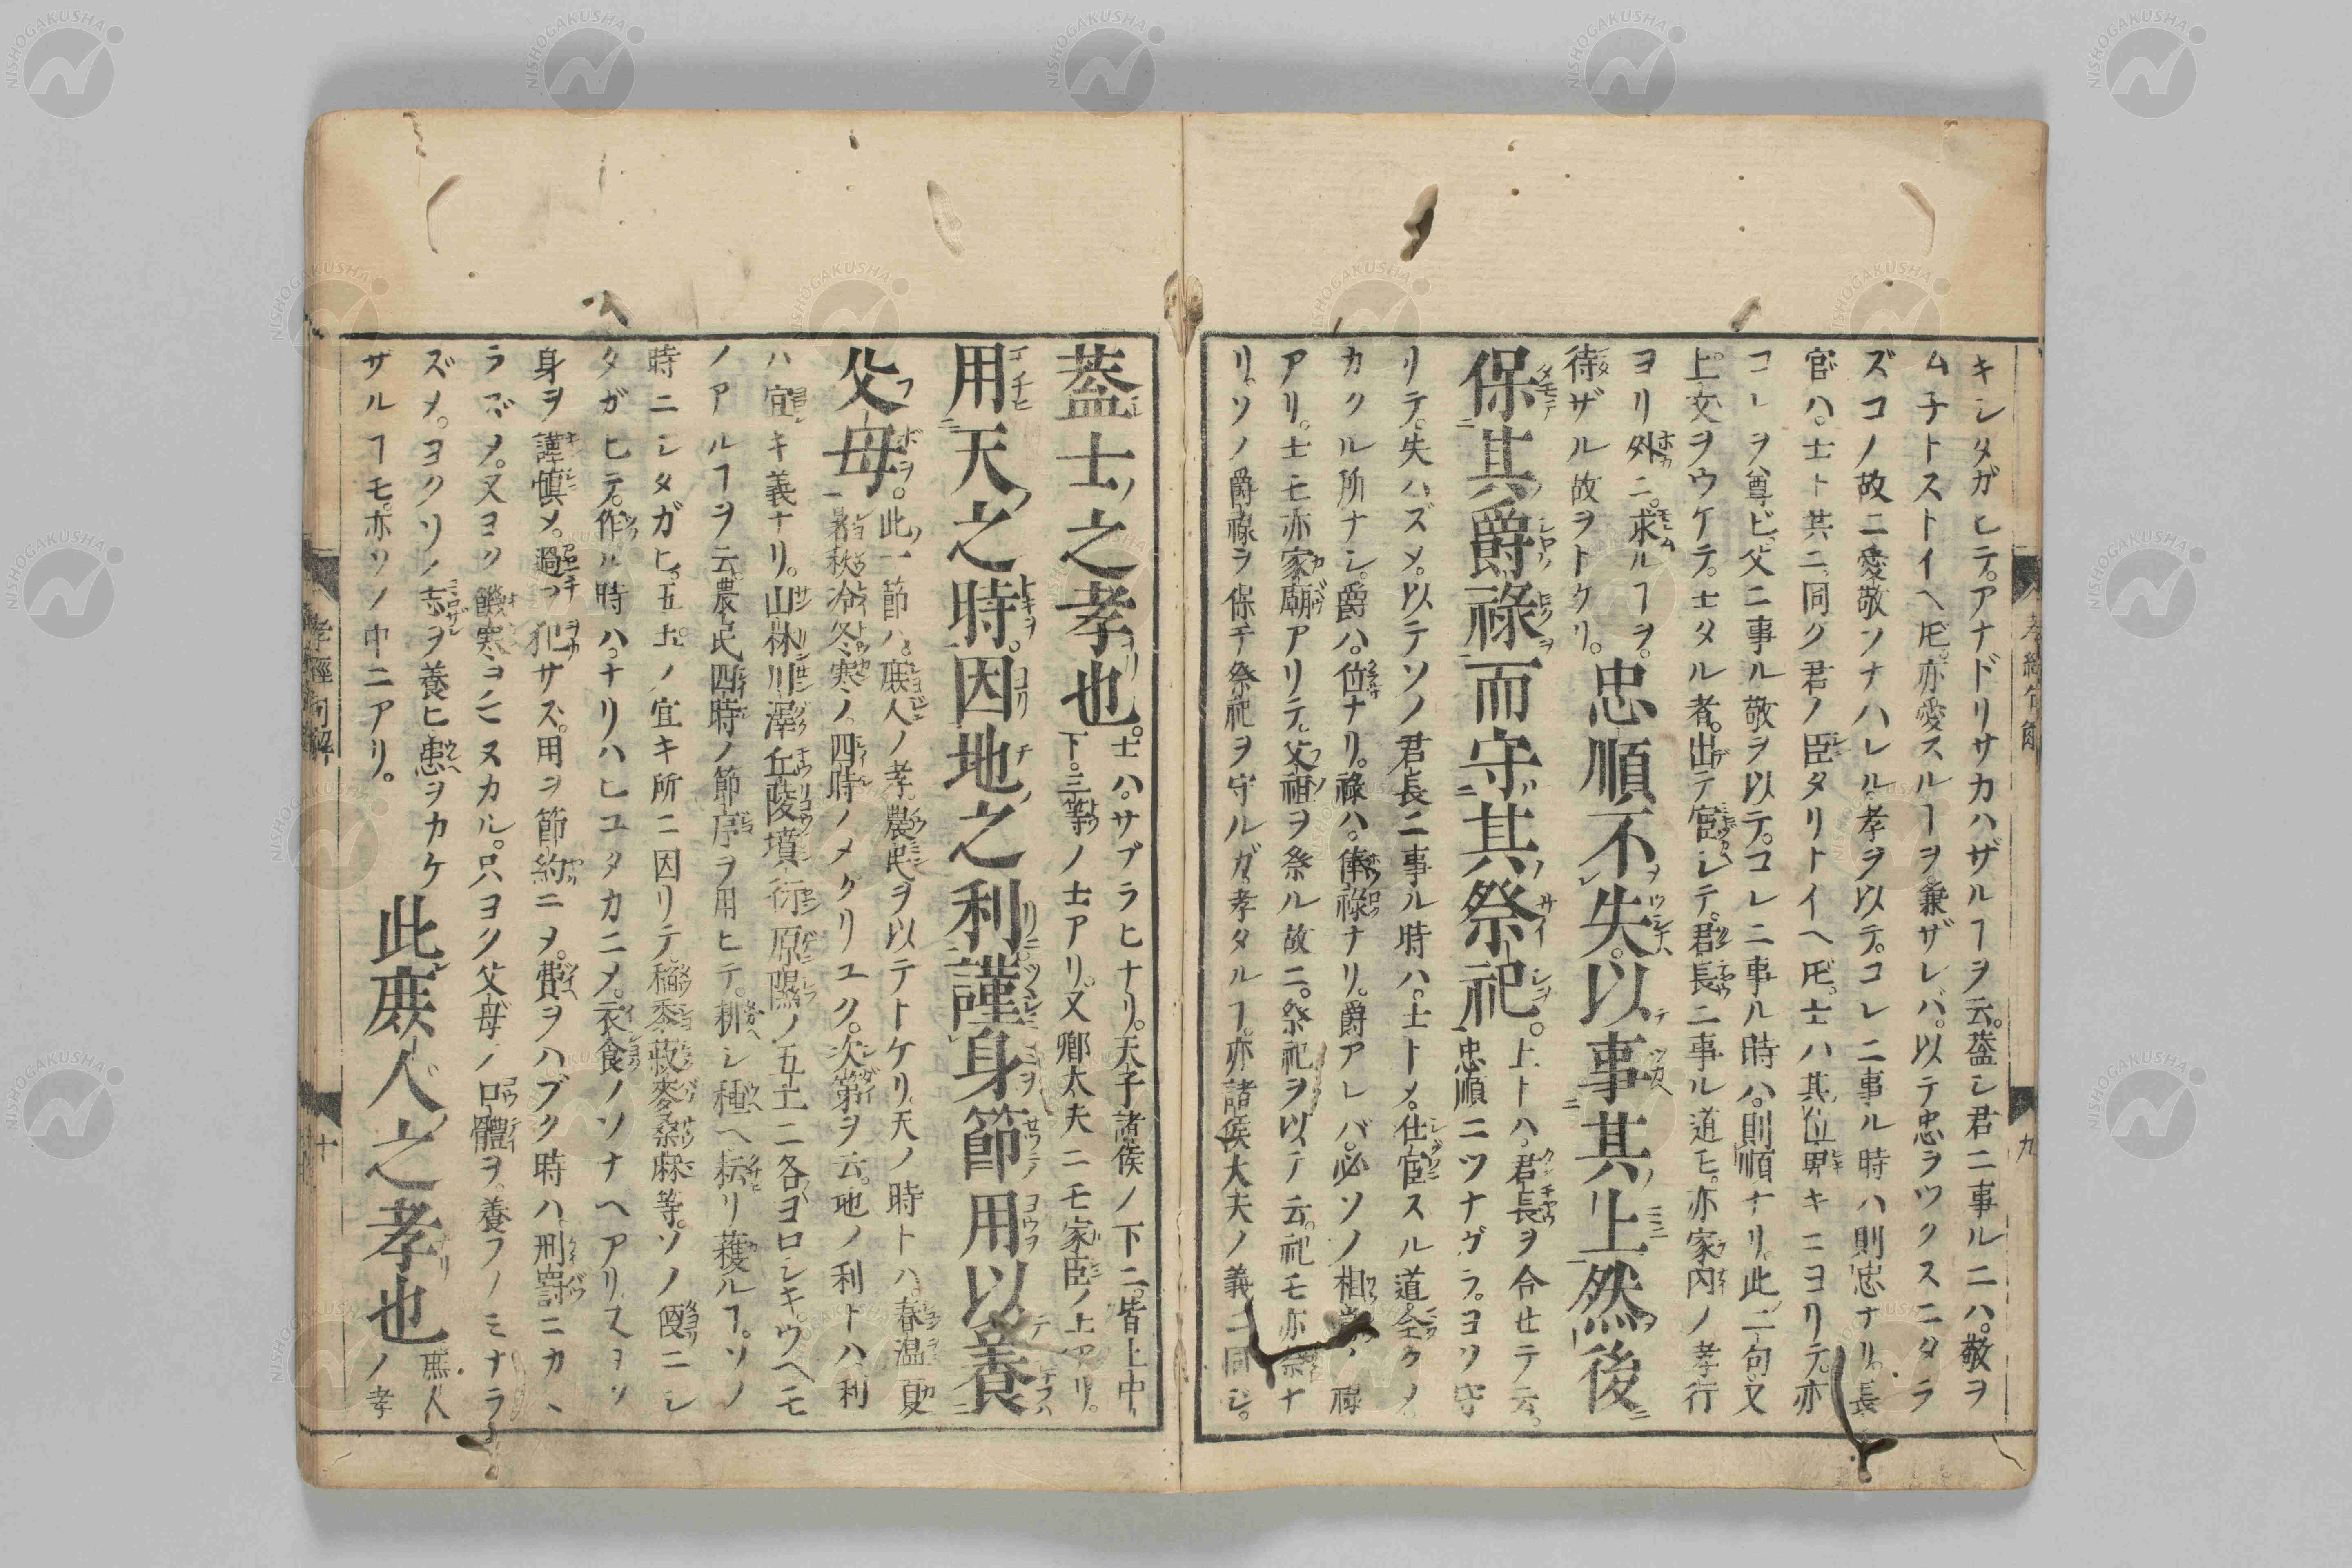 キシタガヒテ。アナドリサカハザルヿヲ云。蓋シ君ニ事ルニハ。敬ヲ
ム子トストイヘ𪜈。亦愛スルヿヲ。兼ザレバ。以テ忠ヲツクスニタラ
ズコノ故ニ愛敬ソナハレル孝ヲ以テ。コレニ事ル時ハ則忠ナリ。長
官ハ。士ト共ニ。同ク君ノ臣タリトイヘ𪜈。士ハ其位卑キニヨリテ。亦
コレヲ尊ビ。父ニ事ル敬ヲ以テ。コレニ事ル時ハ。則順ナリ。此二句又
上文ヲウケテ。士タル者。出テ宦シテ。君長ニ事ル道モ。亦家内ノ孝行
ヨリ外ニ。求ルヿヲ。
待ザル故ヲトケリ。忠順不失。以事其上然後
保其爵祿而守其祭祀。上トハ。君長ヲ合セテ云。
忠順ニツナガラ。ヨク守
リテ。失ハズメ。以テソノ君長ニ事ル時ハ。士トメ。仕宦スル道全クメ
カクル所ナシ。爵ハ。位ナリ。祿ハ。俸祿ナリ。爵アレバ。必ソノ相ノ祿
アリ。士モ亦家廟アリテ。父祖ヲ祭ル故ニ。祭祀ヲ以テ云。祀モ亦祭ナ
リ。ソノ爵祿ヲ保チ祭祀ヲ守ルガ。孝タルヿ。亦諸侯大夫ノ義ニ同シ。
孝經句解
九
蓋士之孝也。士ハ。サブラヒナリ。天子諸侯ノ下ニ。皆上中
下。三等ノ士アリ。又卿大夫ニモ家臣ノ上アリ。
用天之時。因地之利。謹身節用以養
父母。此一節ハ。庶人ノ孝。農民ヲ以テトケリ。天ノ時トハ。春温夏
暑秋冷冬寒ノ。四時ノメグリユク。次第ヲ云。地ノ利トハ。利
ハ宜キ義ナリ。山林川澤丘陵墳衍原隰ノ五土ニ各ヨロシキ。ウヘモ
ノアルヿヲ云。農民四時ノ節序ヲ用ヒテ。耕シ種ヘ耘リ穫ルヿ。ソノ
時ニシタガヒ。五土ノ宜キ所ニ因リテ。稲黍菽麥桑麻等。ソノ便ニシ
タガヒテ。作ル時ハ。ナリハヒユタカニメ。衣食ノソナヘアリ。又ヨク
身ヲ謹愼メ。過ヲ犯サス。用ヲ節約ニメ。費ヲハブク時ハ。刑罰ニカヽ
ラズメ。又ヨク饑寒ヨニヌカル。只ヨク父母ノ口體ヲ。養フノミナラ
ズメ。ヨクソノ志ヲ養ヒ患ヲカケ
ザルヿモ。亦ソノ中ニアリ。此庶人之孝也庶人
ノ孝
孝經句解
十